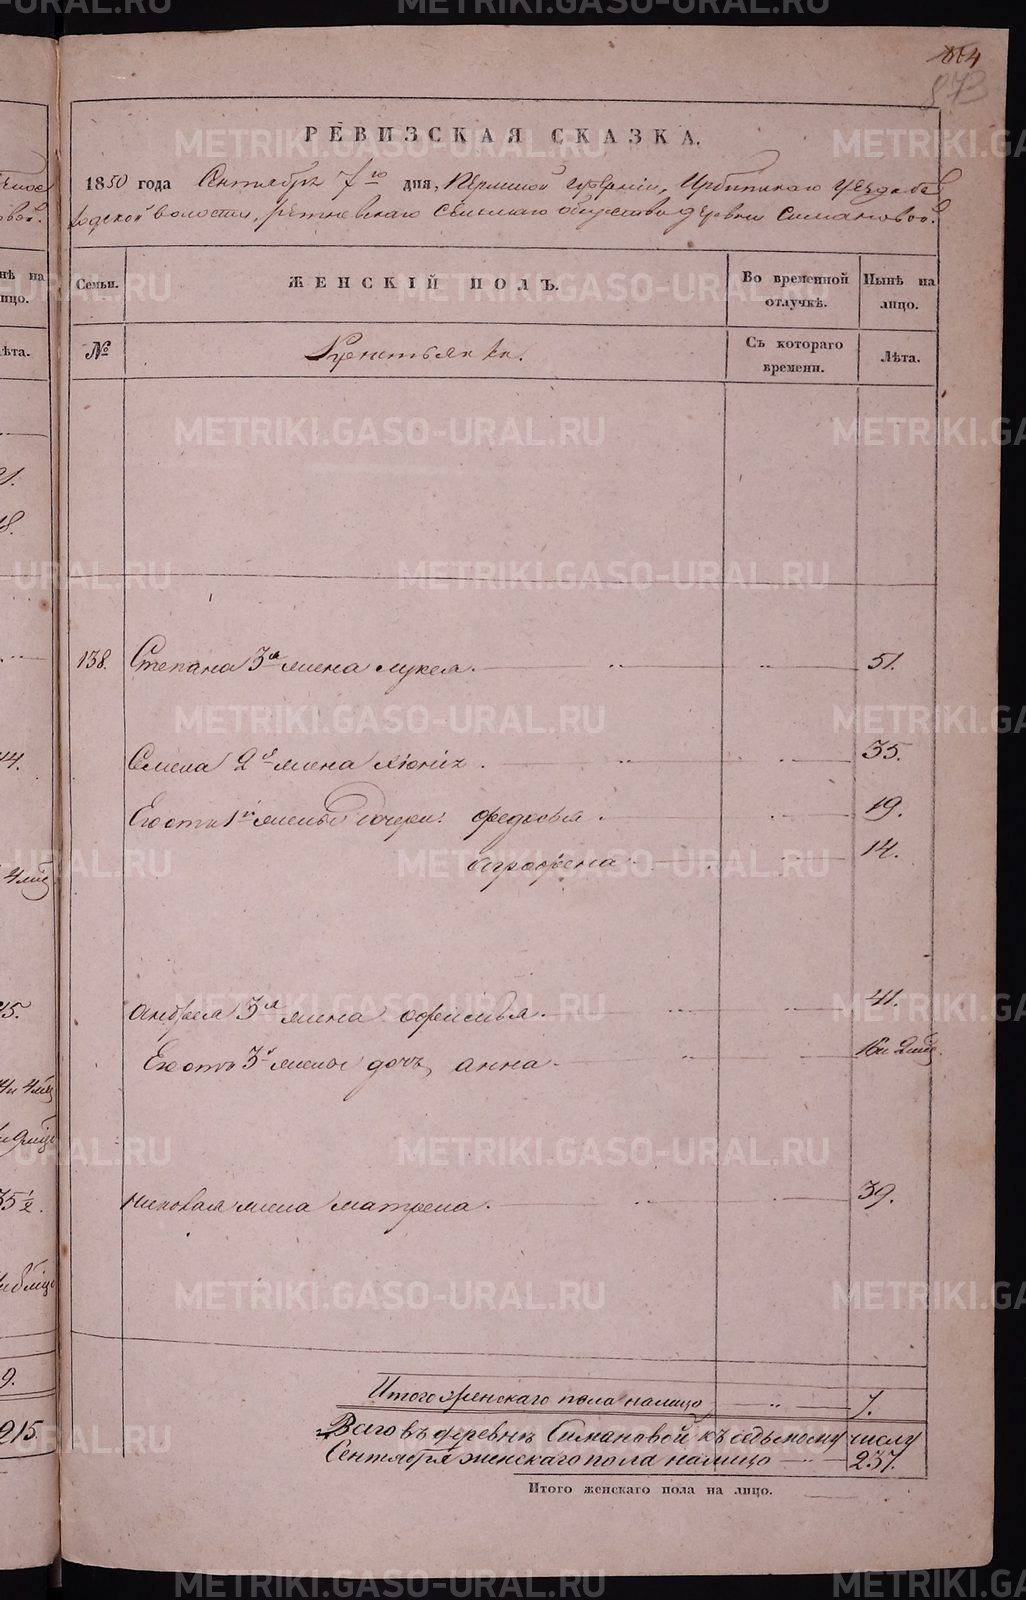 873
РЕВИЗСКАЯ СКАЗКА.
1850 года Сентября 7го дня, Пермской губернии, Ирбитскаго уезда
волости, сельскаго общества деревни Симановой.
Семьи. ЖЕНСКІЙ ПОЛЪ. Во временной отлучкѣ. Нынѣ на лицо.
№ Крестьянки. Съ котораго времени. Лѣта.
138. Степана 3я жена Лукея. 51.
2я жена 35.
Его отъ 1й жены дочери: Федосья. 19.
Аграфена 14.
Андрея 3я жена Офимья. 41.
Его отъ 3й жены дочь, Анна.
жена Матрена. 39.
Итого женскаго пола налицо 7.
Всего въ деревнѣ Симановой къ седьмому числу
Сентября женскаго пола налицо 237.
Итого женскаго пола на лицо.
METRIKI.GASO-URAL.RU